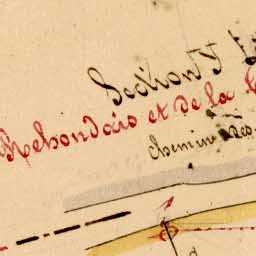 Section F
Rebondais et de la
chemin des